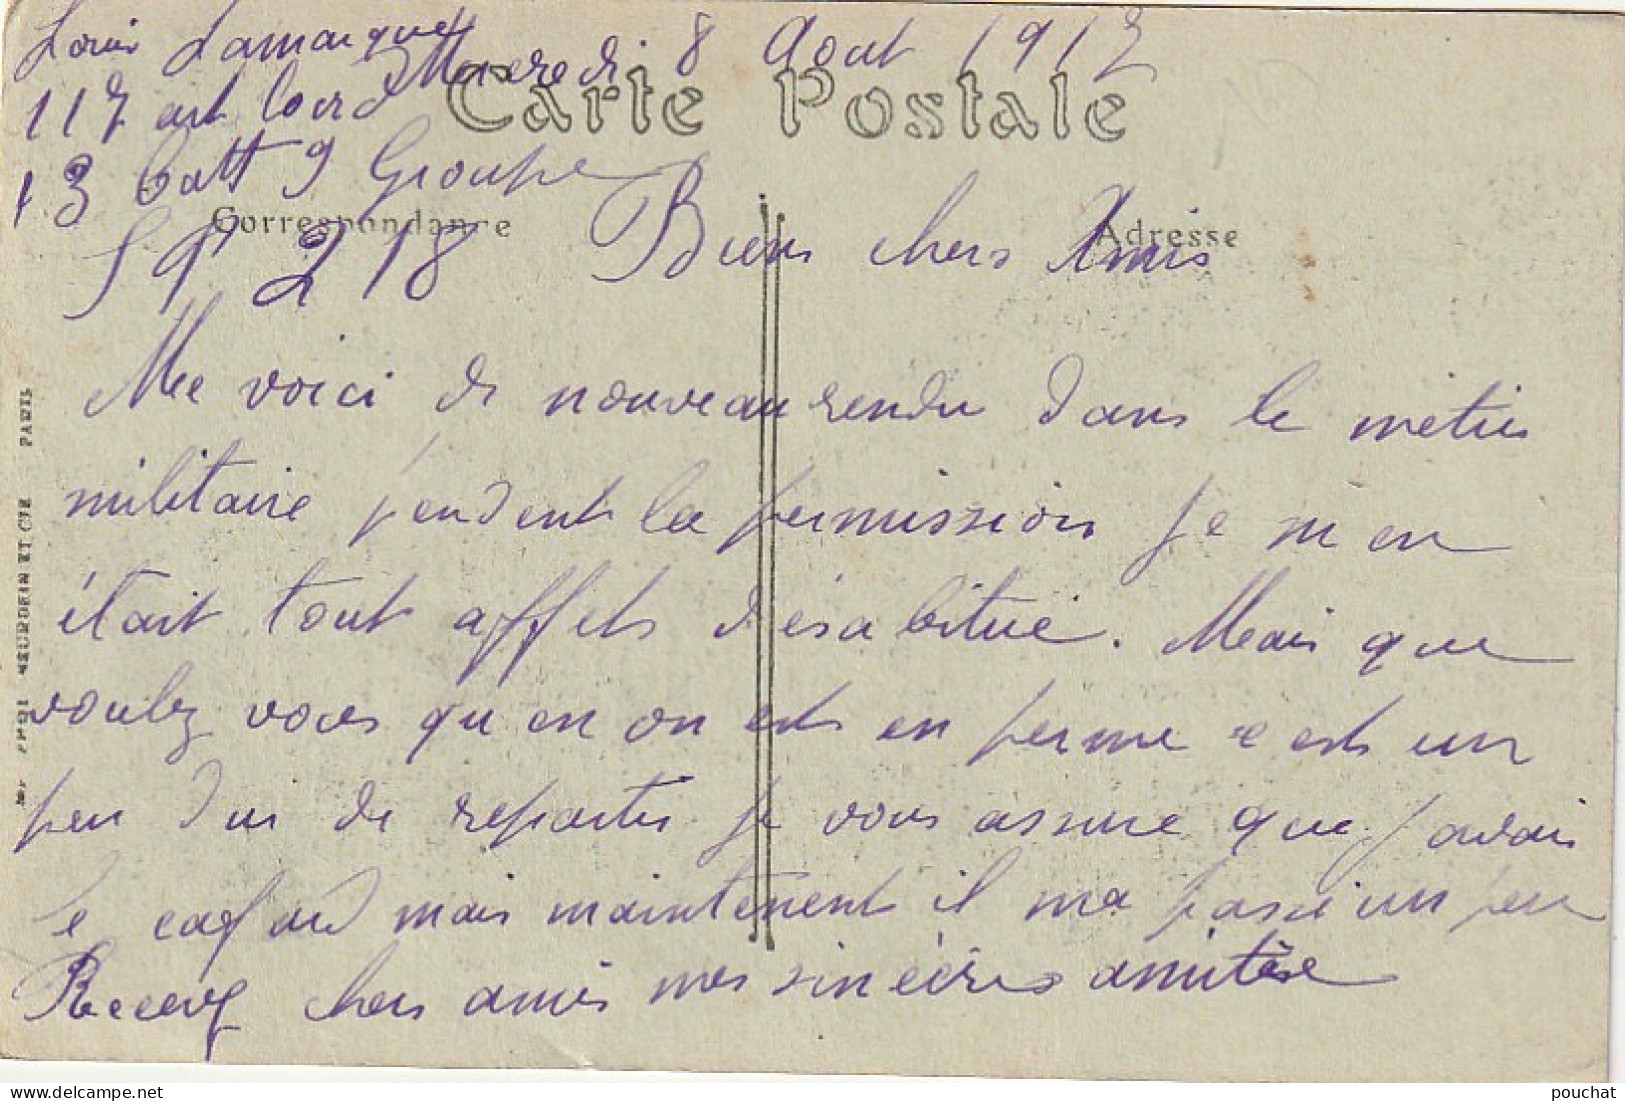 Louis Lamarque Mercredi 8 Aout 1917
117 art lourd
Carte Postale
13 Batt 9 Groupe
Correspondance
Adresse
SP 218 Biens chers Amis
Me voici de nouveau rendu dans le métier
militaire pendent la permission je m en
était tout affets désabitué. Mais que
voulez vous qu en on est en perme c est un
peu dur de repartir je vous assure que j avais
le cafard mais maintenent il ma passé un peu
Recevez chers amis mes sincères amitèse
PHOT NEURDEIN ET CIE PARIS
pouchat